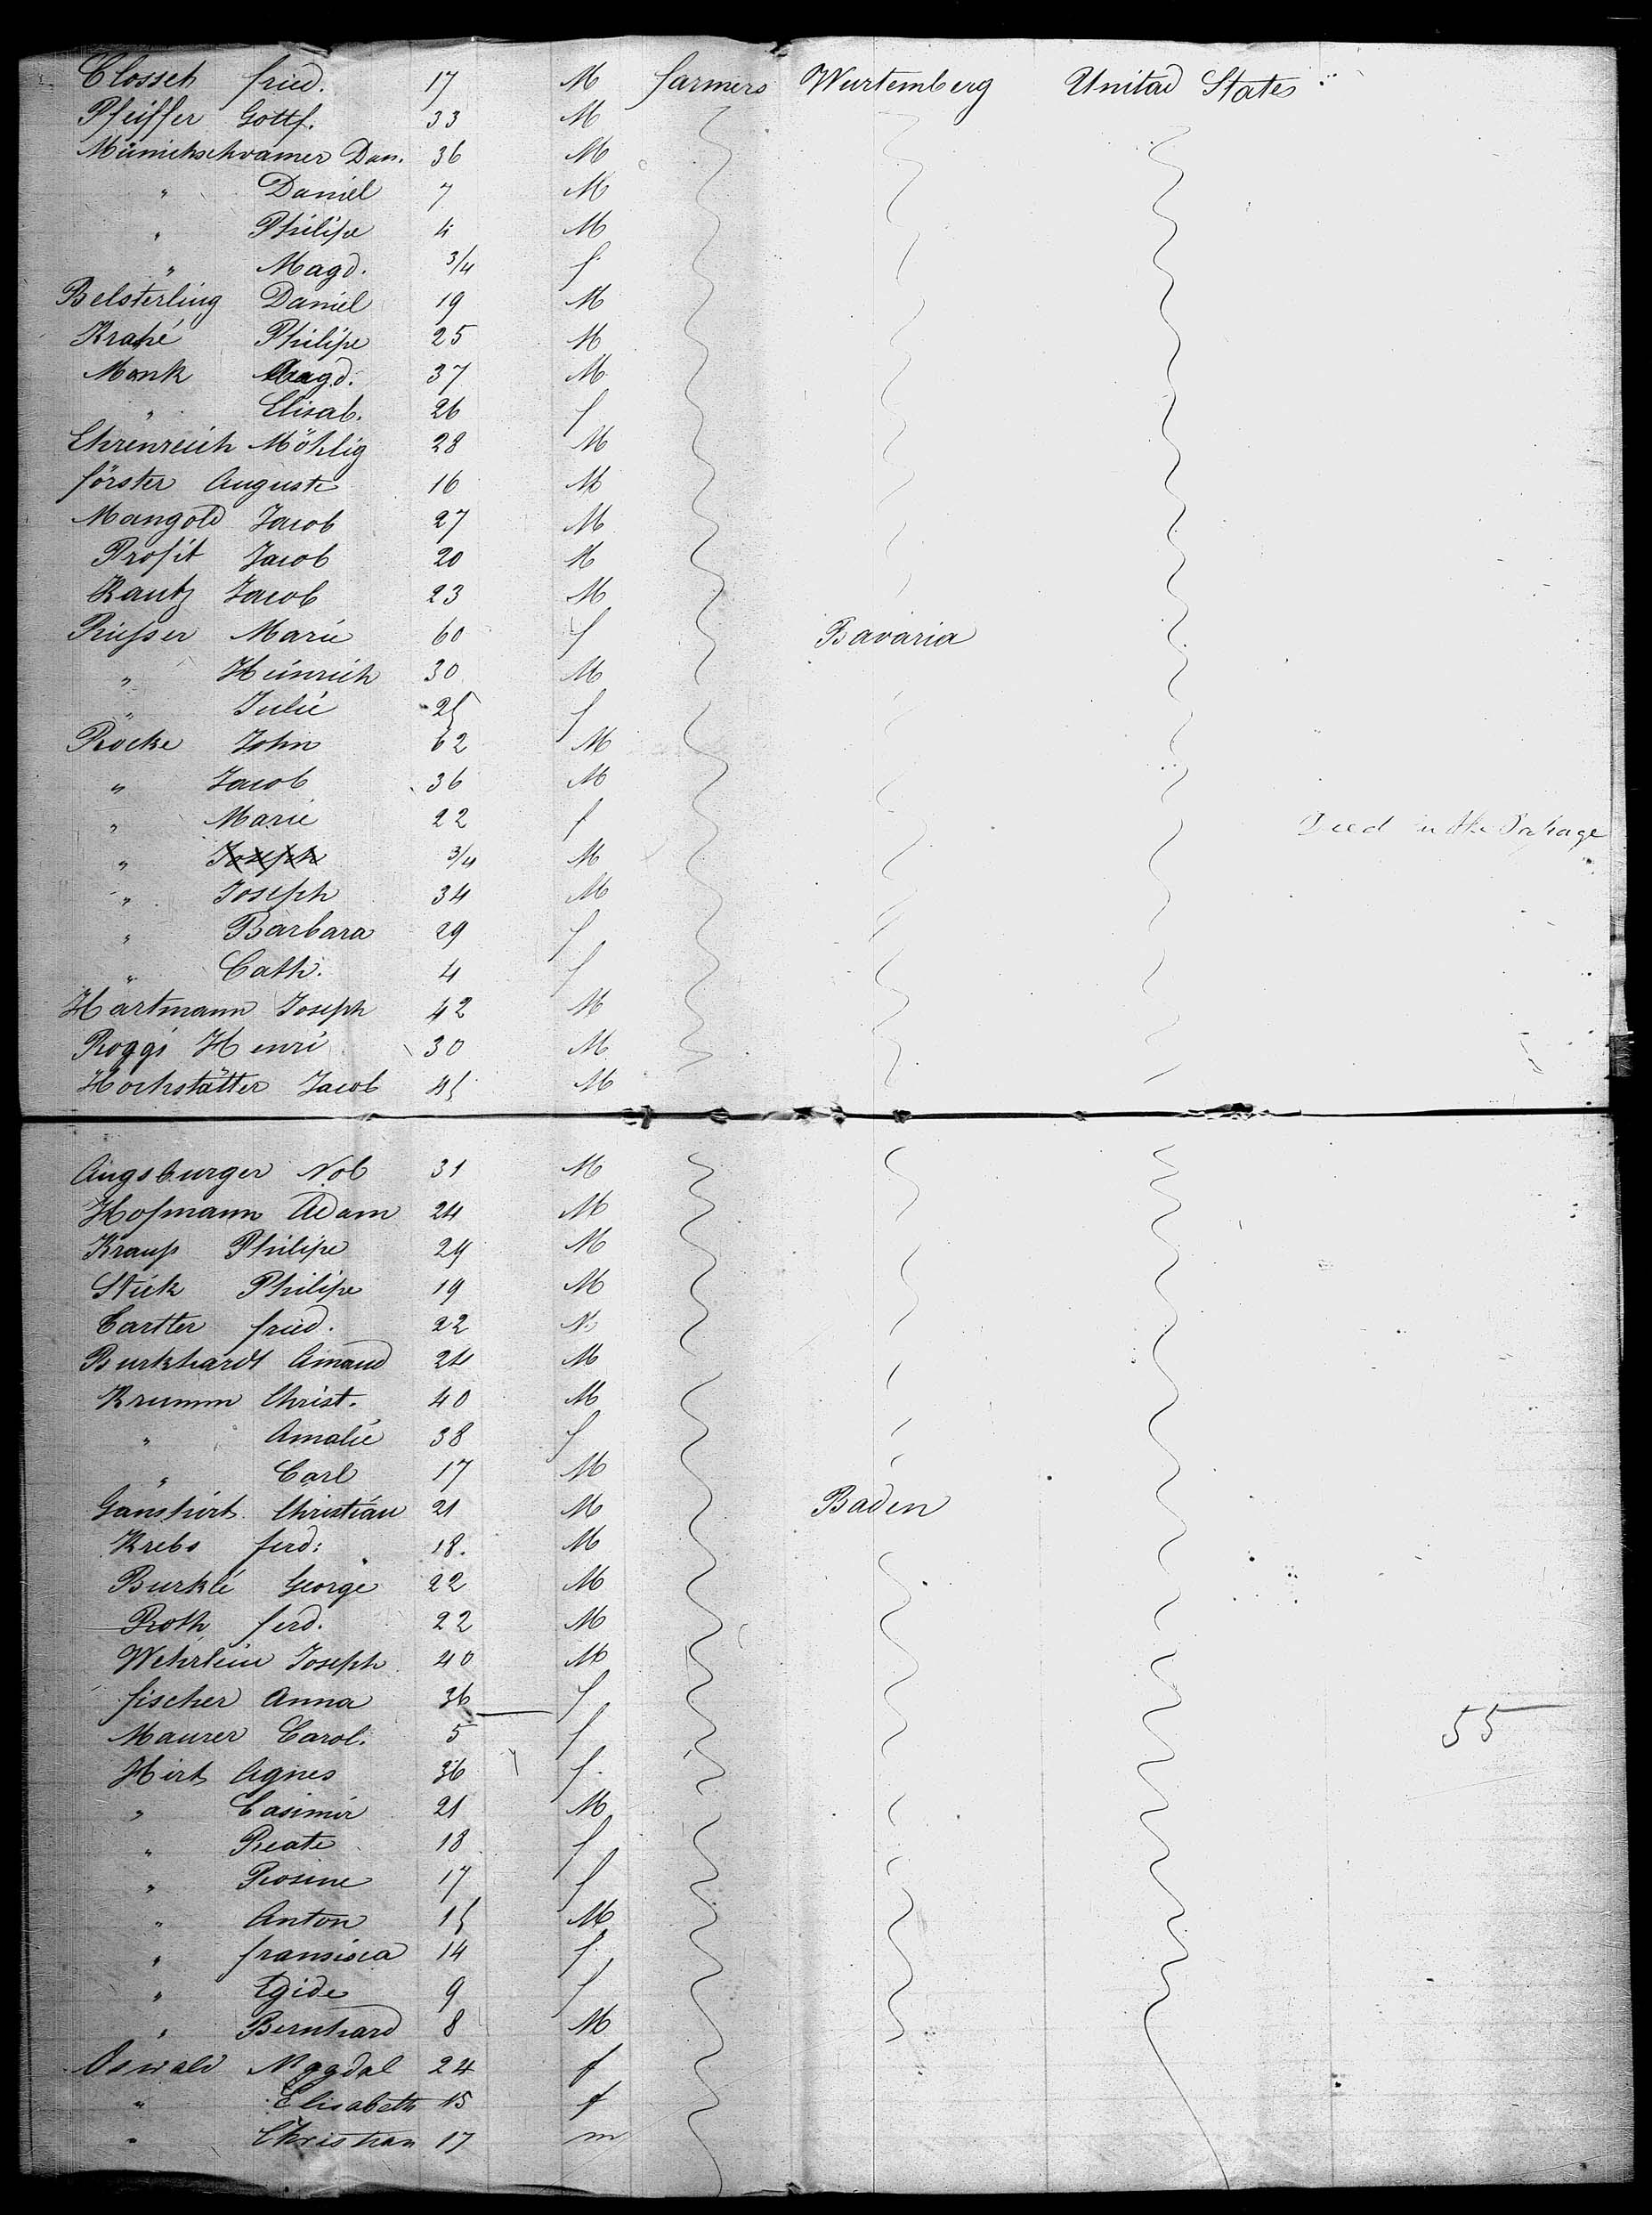 Closset fried. 17 M farmers Wurtemberg United States
Pfeiffer Gottf. 33 M
Münichschwamer Dan. 36 M
" Daniel 7 M
" Philipe 4 M
" Magd. 3/4 f
Belsterling Daniel 19 M
Krahé Philipe 25 M
Monk Magd. 37 M
" Elisab. 26 f
Ehrenreich Möhlig 28 M
förster Auguste 16 M
Mangold Jacob 27 M
Profit Jacob 20 M
Kautz Jacob 23 M
Rießer Marie 60 f Bavaria
" Heinrich 30 M
" Julie 25 f
Röcke John 62 M
" Jacob 36 M
" Marie 22 f Died in the Passage
" Joseph 3/4 M
" Joseph 34 M
" Barbara 29 f
" Cath. 4 f
Hartmann Joseph 42 M
Roggi Henri 30 M
Hochstätter Jacob 45 M
Augsburger Nob 31 M
Hofmann Adam 24 M
Krauß Philipe 29 M
Stick Philipe 19 M
Cartter fried. 22 M
Burkhardt Amand 24 M
Krumm Christ. 40 M
" Amalie 38 f
" Carl 17 M
Ganshirt Christian 21 M Baden
Krebs ferd: 18. M
Burklé George 22 M
Roth ferd. 22 M
Wehrlein Joseph 40 M
fischer Anna 36 f
Maurer Carol. 5 f 55
Hirt Agnes 36 f.
" Casimir 21 M
" Beate 18 f
" Rosine 17 f
" Anton 15 M
" fransisca 14 f.
" Egide 9 f
" Bernhard 8 M
Oswald Magdal 24 f
" Elisabeth 15 f
" Christian 17 m